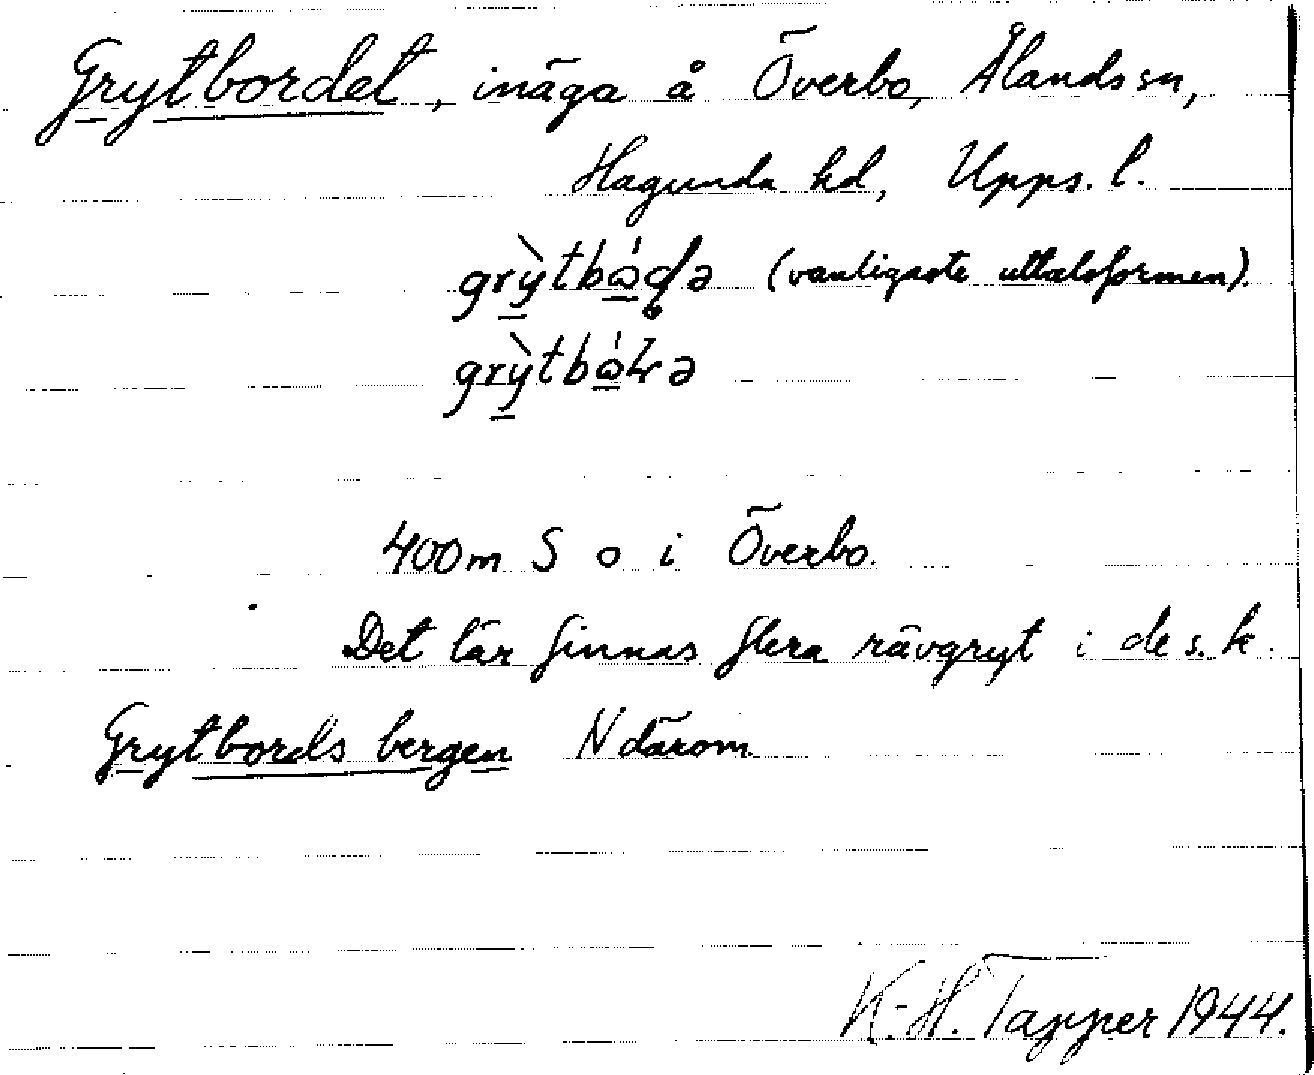 Grytbordet, inäga å Överbo, Ålands sn,
Hagunda hd, Upps. l.
(vanligaste uttalsformen).
400m S o i Överbo.
Det lär finnas flera rävgryt i de s. k.
Grytbords bergen N därom
K.-H. Tapper 1944.